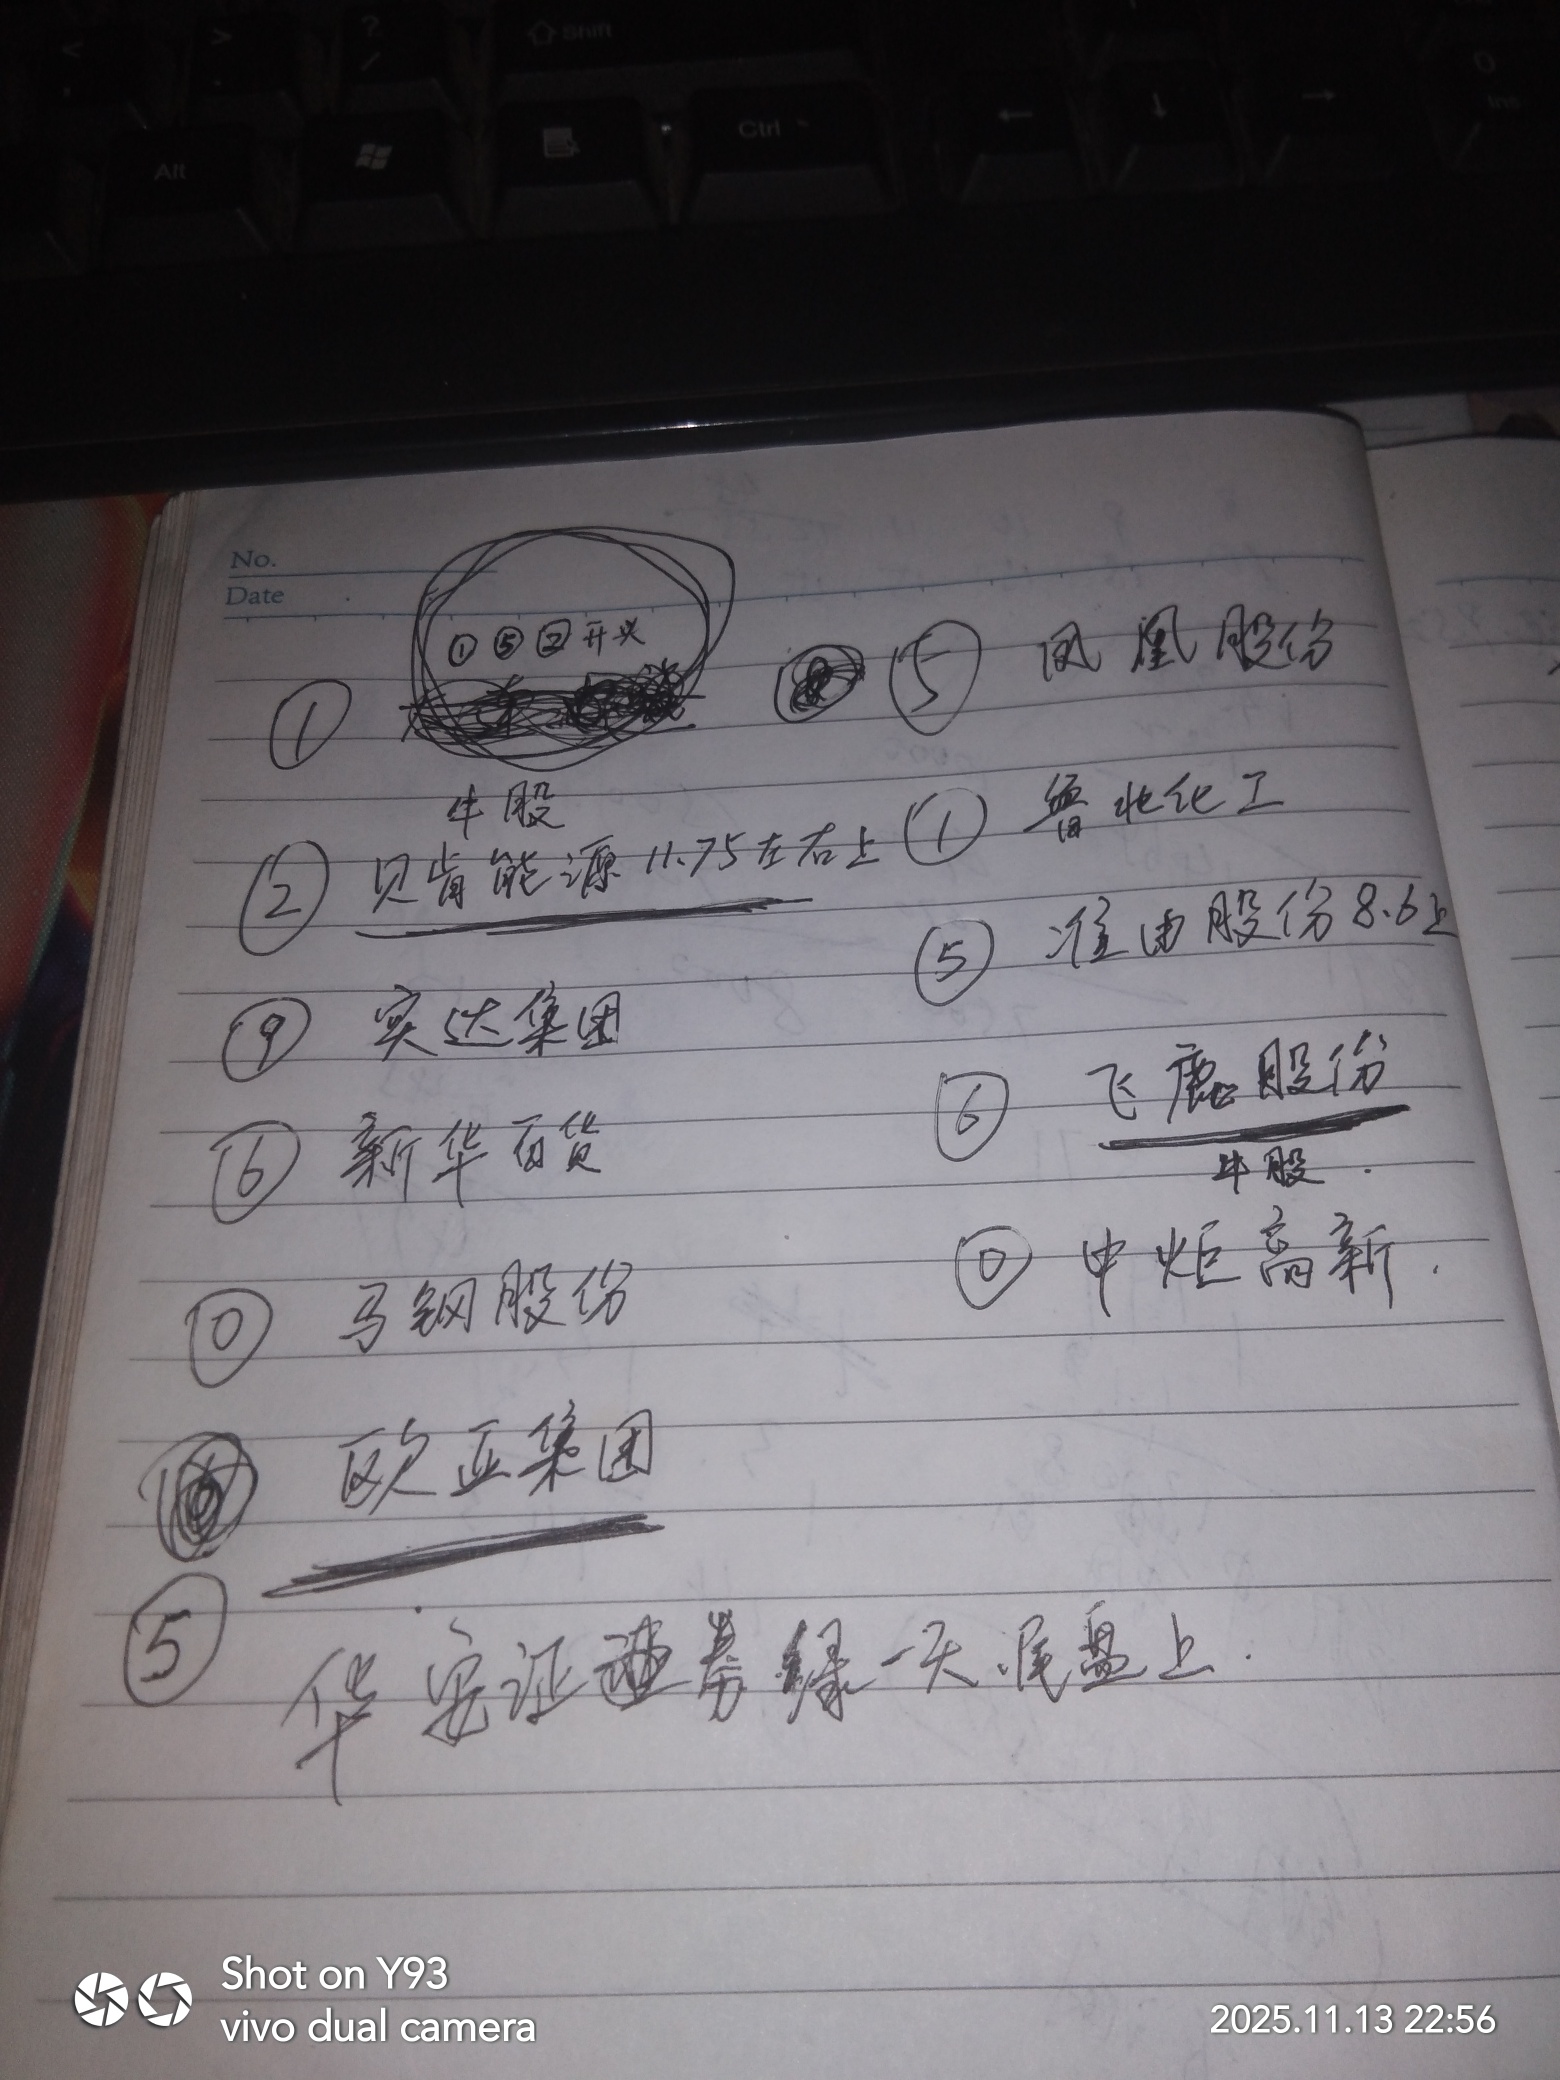 < > ? / Shift
Alt Ctrl ← ↓ → 0 Ins
No.
Date
① ⑤ ② 开头
①
牛股
② 贝肯能源 11.75左右上
⑨ 实达集团
⑥ 新华百货
⓪ 马钢股份
欧亚集团
⑤ 华安证券绿一天.尾盘上.
⑤ 凤凰股份
① 鲁北化工
⑤ 淮油股份8.6上
⑥ 飞鹿股份
牛股.
⓪ 中炬高新.
Shot on Y93
vivo dual camera
2025.11.13 22:56